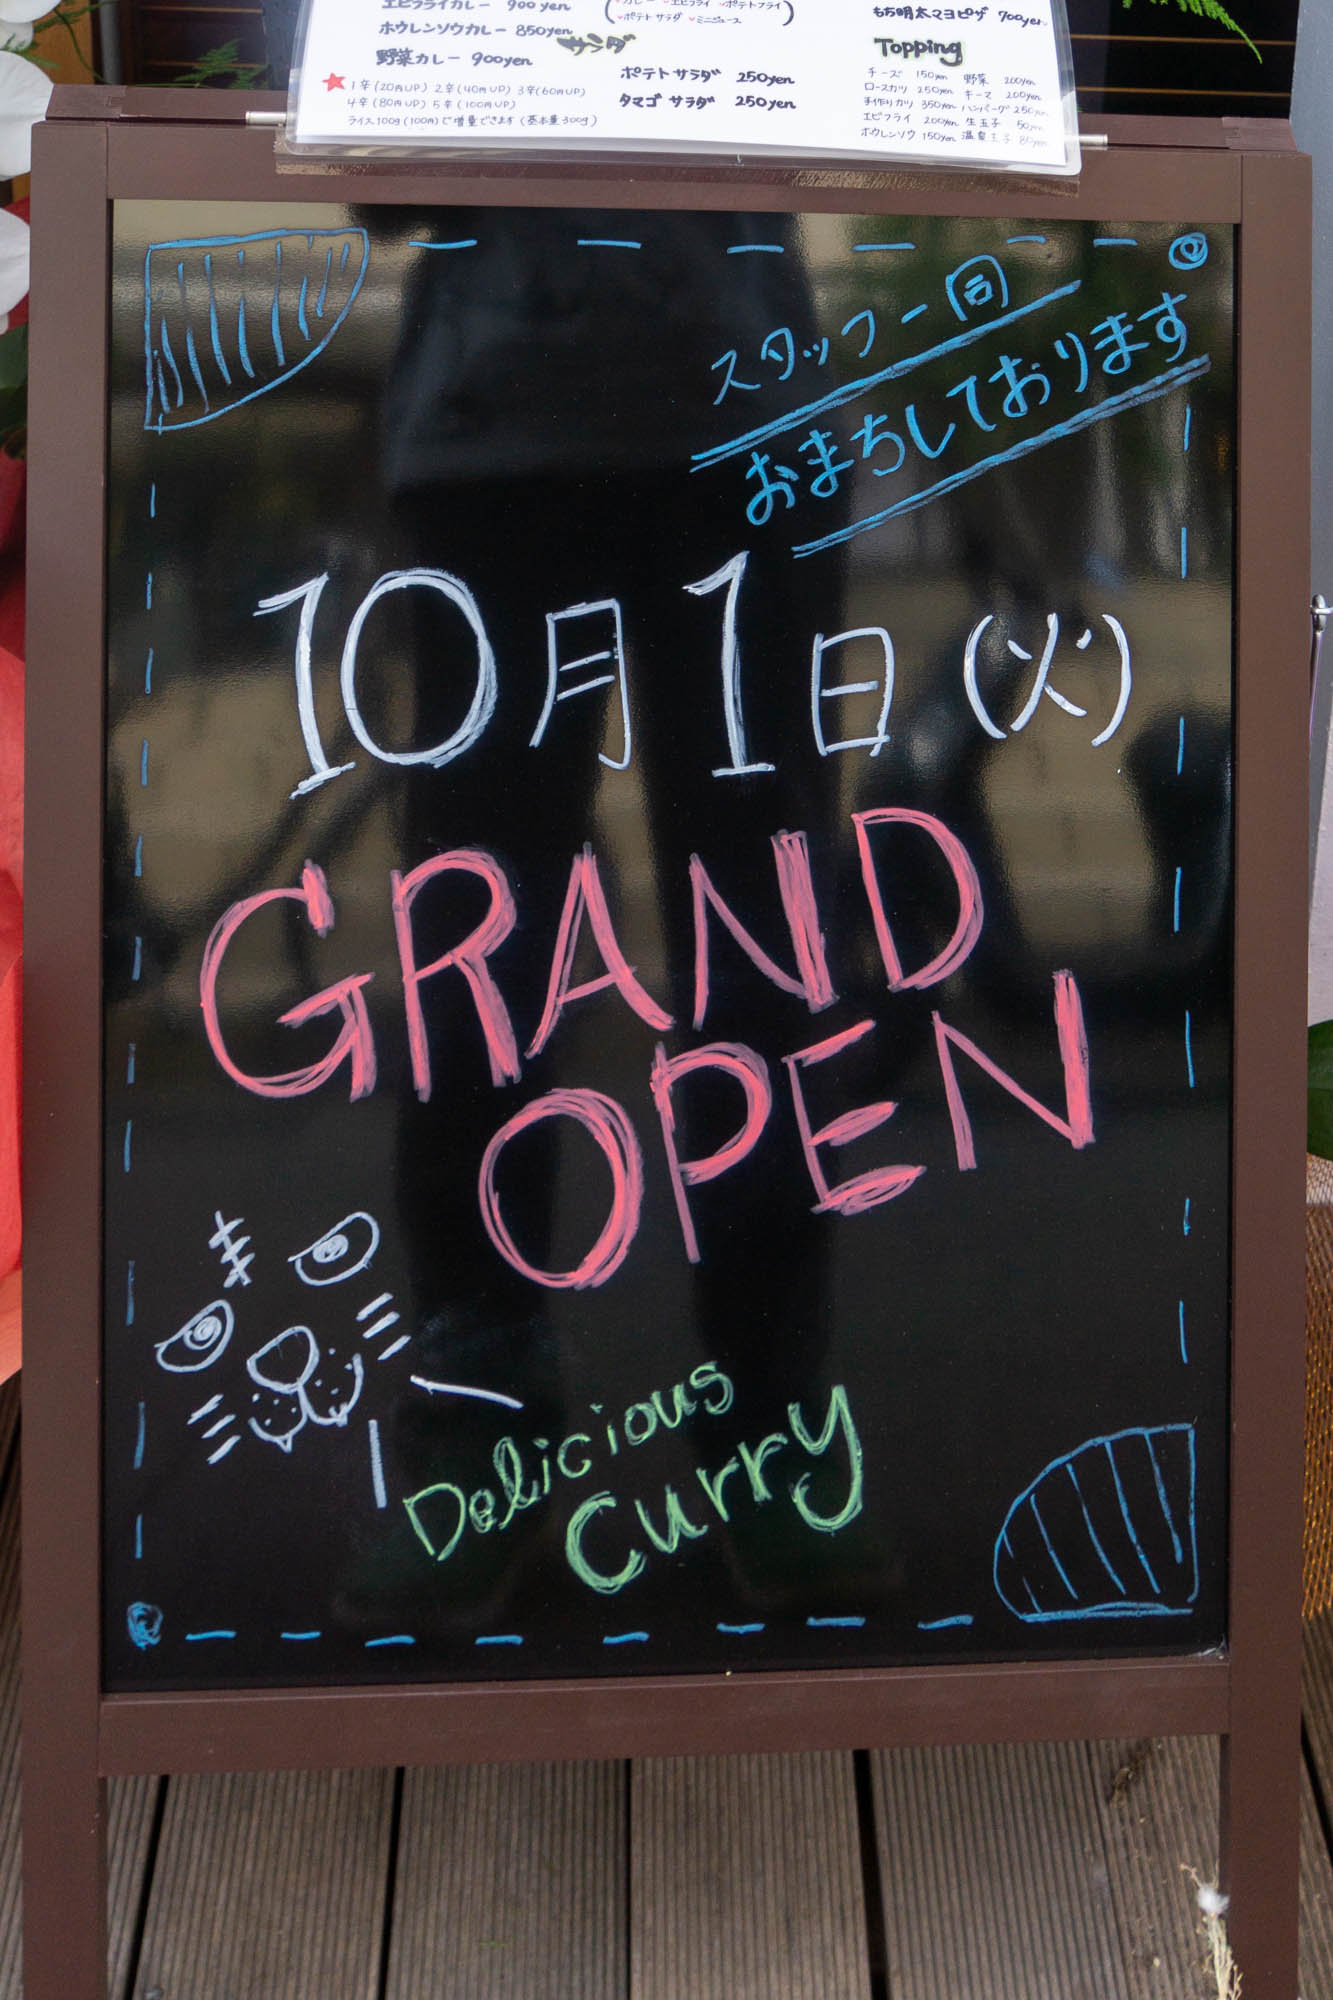 エビフライカレー 900yen
ホウレンソウカレー 850yen
野菜カレー 900yen
★1辛(20円UP) 2辛(40円UP) 3辛(60円UP)
4辛(80円UP) 5辛(100円UP)
ライス100g(100円)で増量できます(基本量300g)
(♥カレー ♥エビフライ ♥ポテトフライ
♥ポテトサラダ ♥ミニジュース)
サラダ
ポテトサラダ 250yen
タマゴサラダ 250yen
もち明太マヨピザ 700yen
Topping
チーズ 150yen 野菜 200yen
ロースカツ 250yen キーマ 200yen
手作りカツ 350yen ハンバーグ 250yen
エビフライ 200yen 生玉子 50yen
ホウレンソウ 150yen 温泉玉子 80yen
スタッフ一同
おまちしております
10月1日(火)
GRAND
OPEN
Delicious
Curry